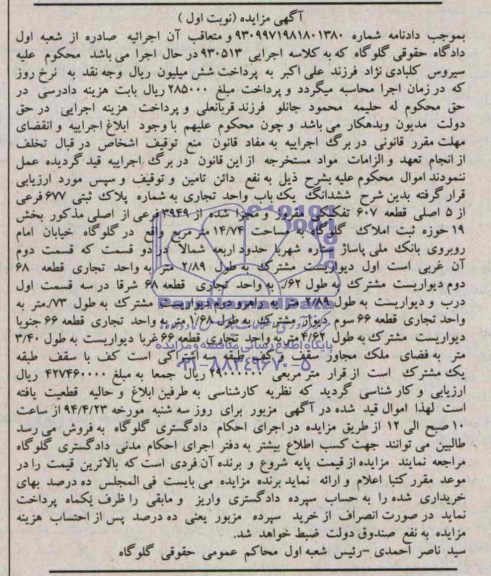 آگهی مزایده (نوبت اول)
بموجب دادنامه شماره ۹۳۰۹۹۷۱۹۸۱۸۰۱۳۸۰ و متعاقب آن اجرائیه صادره از شعبه اول
دادگاه حقوقی گلوگاه که به کلاسه اجرایی ۹۳۰۵۱۳ در حال اجرا می باشد محکوم علیه
سیروس کلبادی نژاد فرزند علی اکبر به پرداخت شش میلیون ریال وجه نقد به نرخ روز
که در زمان اجرا محاسبه میگردد و پرداخت مبلغ ۲۸۵۰۰۰ ریال بابت هزینه دادرسی در
حق محکوم له حلیمه محمود جانلو فرزند قربانعلی و پرداخت هزینه اجرایی در حق
دولت مدیون وبدهکار می باشد و چون محکوم علیهم با وجود ابلاغ اجراییه و انقضای
مهلت مقرر قانونی در برگ اجراییه به مفاد قانون منع توقیف اشخاص در قبال تخلف
از انجام تعهد و الزامات مواد مستخرجه از این قانون در برگ اجراییه قید گردیده عمل
ننمودند اموال محکوم علیه بشرح ذیل به نفع دائن تامین و توقیف و سپس مورد ارزیابی
قرار گرفته بدین شرح ششدانگ یک باب واحد تجاری به شماره پلاک ثبتی ۶۷۷ فرعی
از ۵ اصلی قطعه ۶۰۷ تفکیکی مفروز و مجزا شده از ۳۹۴۹ فرعی از اصلی مذکور بخش
۱۹ حوزه ثبت املاک گلوگاه به مساحت ۱۴/۷۳ متر مربع واقع در گلوگاه خیابان امام
روبروی بانک ملی پاساژ ستاره شهر با حدود اربعه شمالا در دو قسمت که قسمت دوم
آن غربی است اول دیواریست مشترک به طول ۲/۸۹ متر به واحد تجاری قطعه ۶۸
دوم دیواریست مشترک به طول ۶۲/. به واحد تجاری قطعه ۶۸ شرقا در سه قسمت اول
درب و دیواریست به طول ۲/۸۹ متر به راهرو دوم دیواریست مشترک به طول ۷۳/. متر به
واحد تجاری قطعه ۶۶ سوم دیوار مشترک به طول ۱/۶۸ متر به واحد تجاری قطعه ۶۶ جنوبا
دیواریست مشترک به طول ۴/۶۲ متر به واحد تجاری قطعه ۶۶ غربا دیواریست به طول ۳/۴۰
متر به فضای ملک مجاور سقف و کف طبقه سه اشتراکی است کف با سقف طبقه
یک مشترک است از قرار متر مربعی ریال جمعا به مبلغ ۴۲۷۴۶۰۰۰۰ ریال
ارزیابی و کارشناسی گردید که نظریه کارشناسی به طرفین ابلاغ و حالیه قطعیت یافته
است لهذا اموال قید شده در آگهی مزبور برای روز سه شنبه مورخه ۹۴/۴/۲۳ از ساعت
۱۰ صبح الی ۱۲ از طریق مزایده در اجرای احکام دادگستری گلوگاه به فروش می رسد
طالبین می توانند جهت کسب اطلاع بیشتر به دفتر اجرای احکام مدنی دادگستری گلوگاه
مراجعه نمایند مزایده از قیمت پایه شروع و برنده آن فردی است که بالاترین قیمت را در
موعد مقرر کتبا اعلام و ارائه نماید برنده مزایده می بایست فی المجلس ده درصد بهای
خریداری شده را به حساب سپرده دادگستری واریز و مابقی را ظرف یکماه پرداخت
نماید در صورت انصراف از خرید سپرده مزبور یعنی ده درصد پس از احتساب هزینه
مزایده به نفع صندوق دولت ضبط خواهد شد.
سید ناصر احمدی -رئیس شعبه اول محاکم عمومی حقوقی گلوگاه
ParsNamadData
پایگاه اطلاع رسانی مناقصه و مزایده
۰۲۱-۸۸۳۴۹۶۷۰-۵